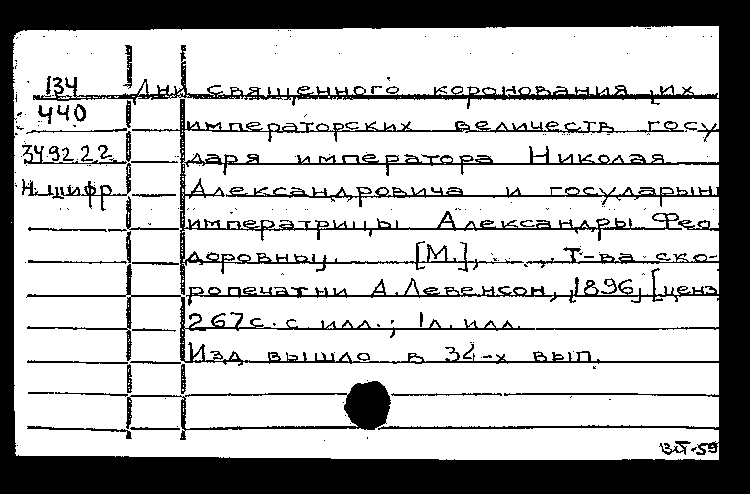 134 Дни священного коронования их
440 императорских величеств госу
3492 22 даря императора Николая
Н. шифр Александровича и государын
императрицы Александры Фео
доровны. [М.], Т-ва ско-
ропечатни А. Левенсон, 1896, [ценз
267с. с илл.; 1л. илл.
Изд вышло в 34-х вып.